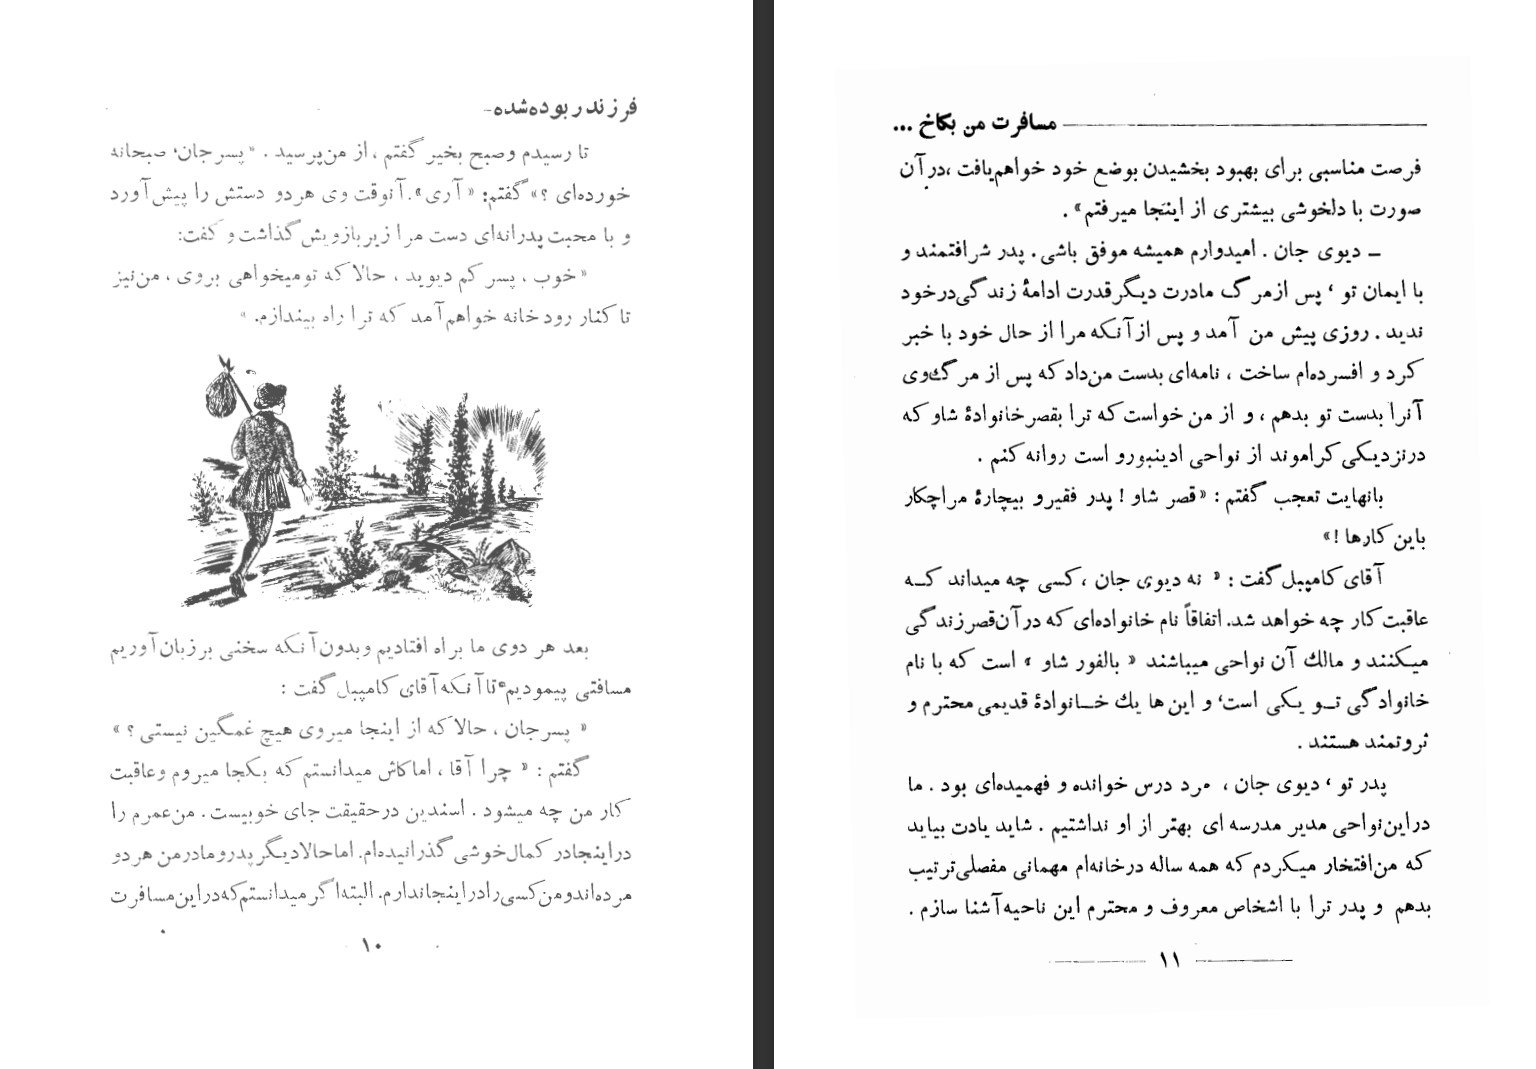 فرزند ربوده‌شده-
تا رسیدم وصبح بخیر گفتم ، از من‌پرسید . «پسرجان، صبحانه
خورده‌ای ؟» گفتم: « آری ». آنوقت وی هردو دستش را پیش‌آورد
و با محبت پدرانه‌ای دست مرا زیربازویش گذاشت و گفت:
«خوب ، پسرکم دیوید ، حالا که تومیخواهی بروی ، من‌نیز
تا کنار رودخانه خواهم‌آمد که ترا راه بیندازم. »
بعد هر دوی ما براه افتادیم وبدون‌آنکه سخنی برزبان‌آوریم
مسافتی پیمودیم تاآنکه‌آقای کامپبل گفت :
« پسرجان ، حالاکه از اینجا میروی هیچ غمگین نیستی ؟ »
گفتم : « چرا آقا ، اماکاش میدانستم که بکجا میروم وعاقبت
کار من چه میشود . اسندین درحقیقت جای خوبیست . من‌عمرم را
دراینجادر کمال‌خوشی گذرانیده‌ام. اماحالادیگر پدرومادرمن هردو
مرده‌اندومن‌کسی‌رادراینجاندارم. البته‌اگرمیدانستم‌که‌دراین‌مسافرت
۱۰
مسافرت من بکاخ ...
فرصت مناسبی برای بهبود بخشیدن بوضع خود خواهم‌یافت ،درآن
صورت با دلخوشی بیشتری از اینجا میرفتم» .
ــ دیوی جان . امیدوارم همیشه موفق باشی . پدر شرافتمند و
با ایمان تو ، پس ازمرگ مادرت دیگرقدرت ادامهٔ زندگی‌درخود
ندید . روزی پیش من آمد و پس ازآنکه مرا از حال خود با خبر
کرد و افسرده‌ام ساخت ، نامه‌ای بدست من‌داد که پس از مرگ‌وی
آنرا بدست تو بدهم ، و از من خواست که ترا بقصرخانوادهٔ شاو که
درنزدیکی کراموند از نواحی ادینبورو است روانه کنم .
بانهایت تعجب گفتم : «قصر شاو ! پدر فقیرو بیچارهٔ مراچکار
باین کارها !»
آقای کامپبل گفت : « نه دیوی جان ، کسی چه میداند کــه
عاقبت کار چه خواهد شد. اتفاقاً نام خانواده‌ای که درآن‌قصرزندگی
میکنند و مالك آن نواحی میباشند « بالفور شاو » است که با نام
خانوادگی تــو یکی است، و این ها یك خــانوادهٔ قدیمی محترم و
ثروتمند هستند .
پدر تو ، دیوی جان ، مرد درس خوانده و فهمیده‌ای بود . ما
دراین‌نواحی مدیر مدرسه ای بهتر از او نداشتیم . شاید یادت بیاید
که من‌افتخار میکردم که همه ساله درخانه‌ام مهمانی مفصلی‌ترتیب
بدهم و پدر ترا با اشخاص معروف و محترم این ناحیه‌آشنا سازم .
۱۱